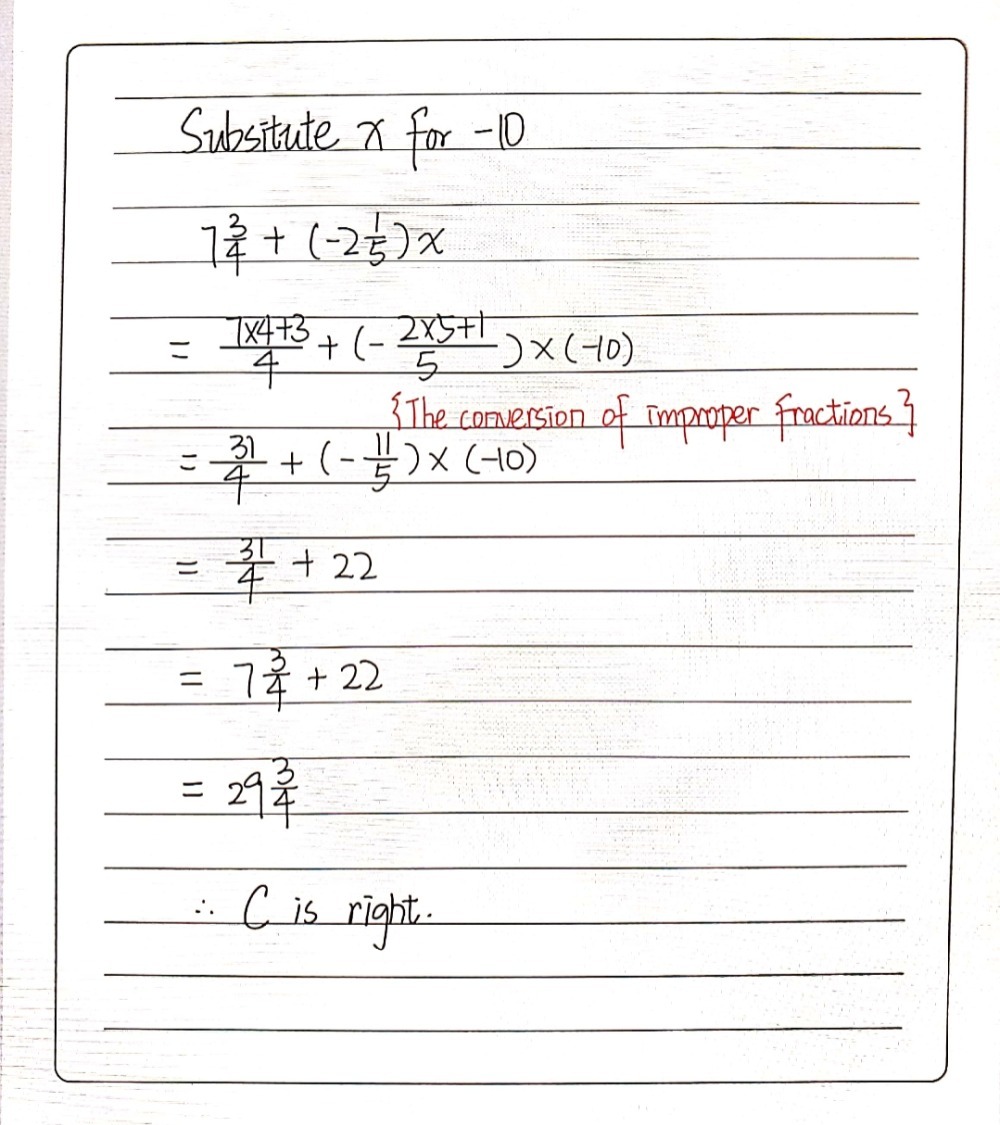 Subsitute x for -10
7 3/4 + (-2 1/5)x
= (7×4+3)/4 + (- (2×5+1)/5) × (-10)
{The conversion of improper fractions}
= 31/4 + (- 11/5) × (-10)
= 31/4 + 22
= 7 3/4 + 22
= 29 3/4
∴ C is right.